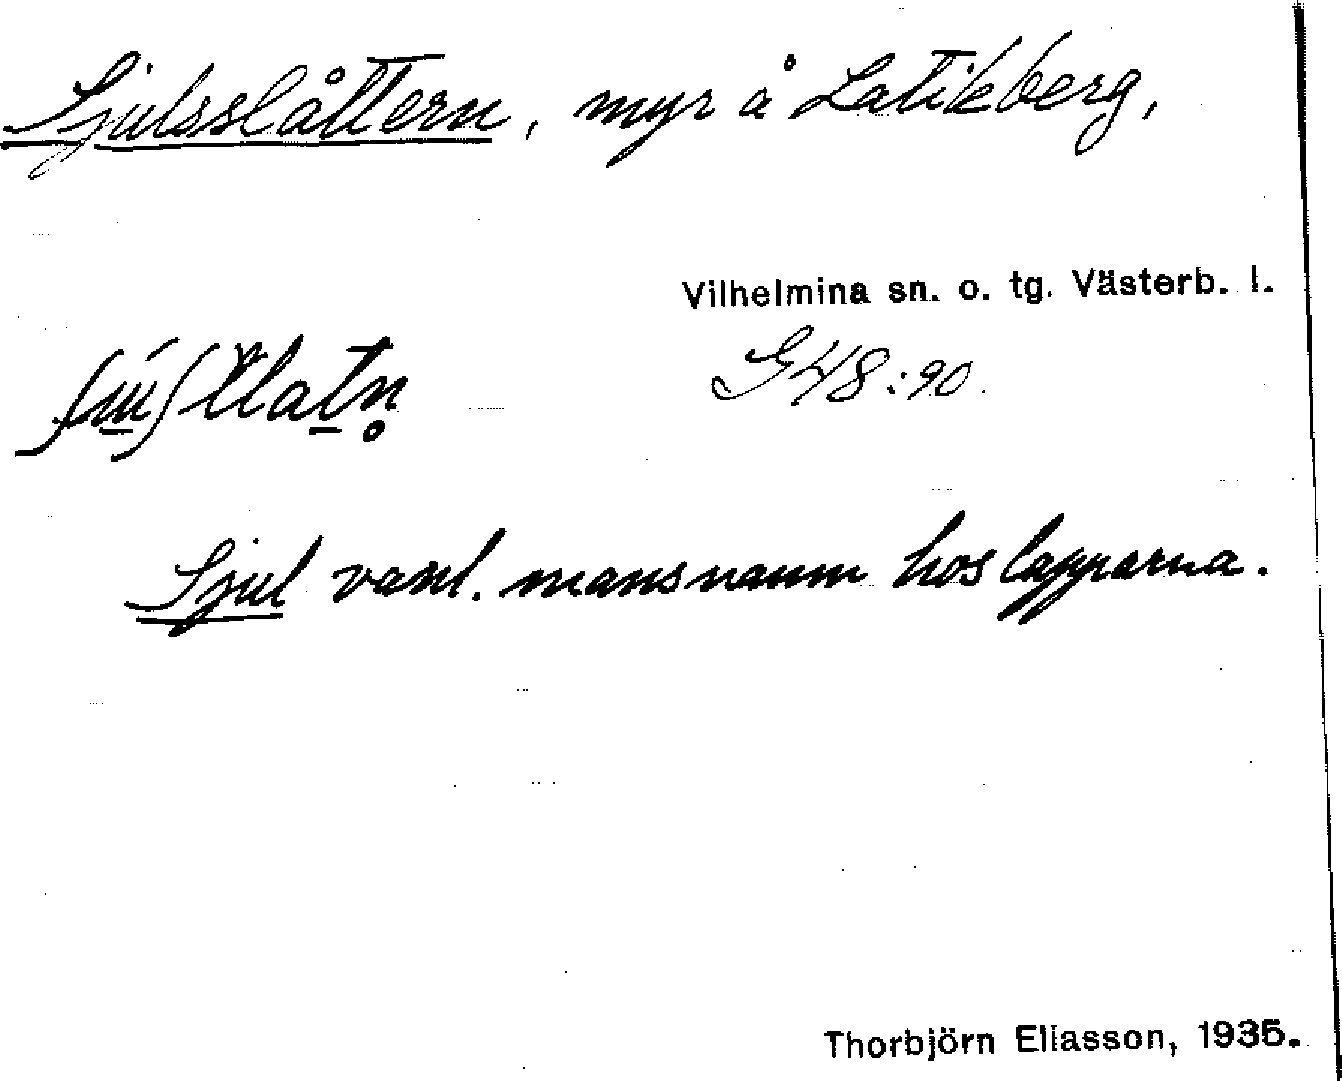 Sjulsslåttern, myr å Latikberg,
Vilhelmina sn. o. tg. Västerb. l.
G48:90.
Sjul vanl. mansnamn hos lapparna.
Thorbjörn Eliasson, 1935.